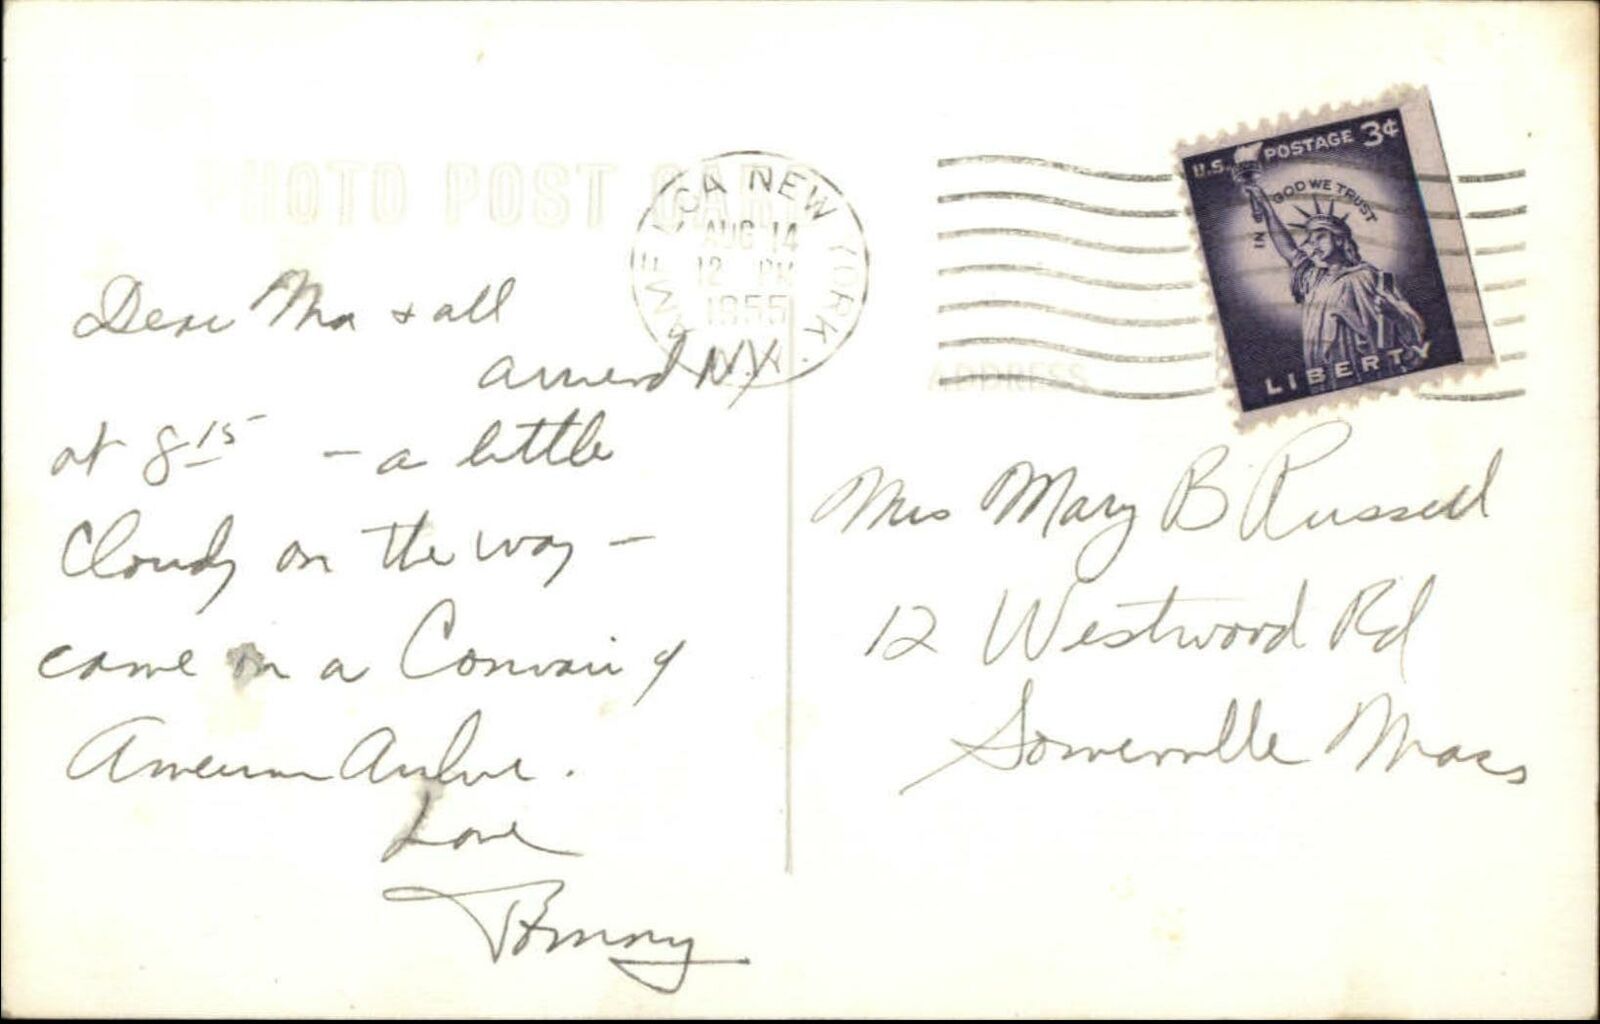 PHOTO POST CARD
JAMAICA NEW YORK.
AUG 14
12 PM
1955
U.S. POSTAGE 3¢
IN GOD WE TRUST
LIBERTY
ADDRESS
Dear Ma & all
arrived N.Y.
at 8 15 - a little
Cloudy on the way -
came in a Convair of
American Airline.
Love
Tommy
Mrs Mary B Russell
12 Westwood Rd
Somerville Mass